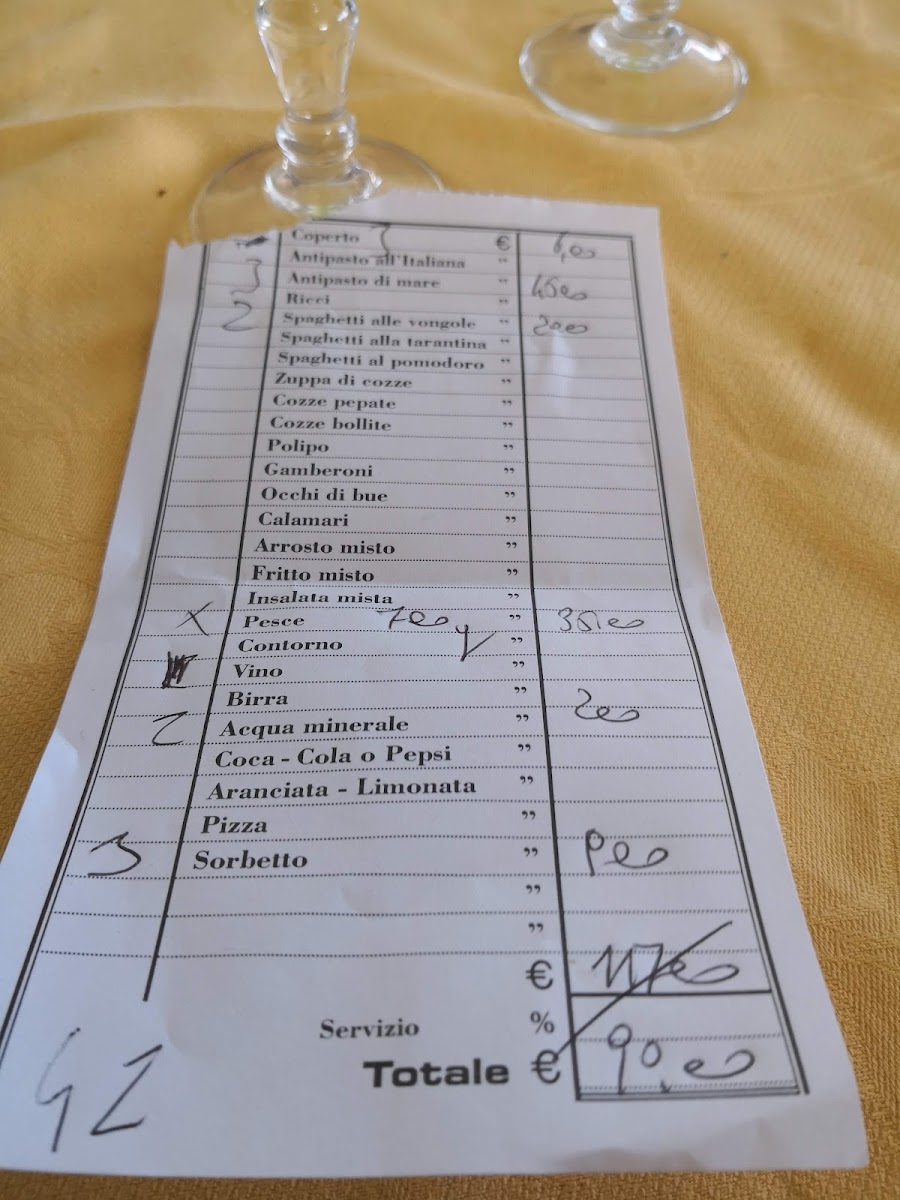 Coperto 3 € 6,00
Antipasto all'Italiana "
3 Antipasto di mare " 4500
Ricci "
2 Spaghetti alle vongole " 2000
Spaghetti alla tarantina "
Spaghetti al pomodoro "
Zuppa di cozze "
Cozze pepate "
Cozze bollite "
Polipo "
Gamberoni "
Occhi di bue "
Calamari "
Arrosto misto "
Fritto misto "
Insalata mista "
X Pesce 700 " 3500
Contorno "
Vino "
Birra "
2 Acqua minerale " 200
Coca - Cola o Pepsi "
Aranciata - Limonata "
Pizza "
3 Sorbetto " 900
"
"
€ 11700
Servizio %
Totale € 90,00